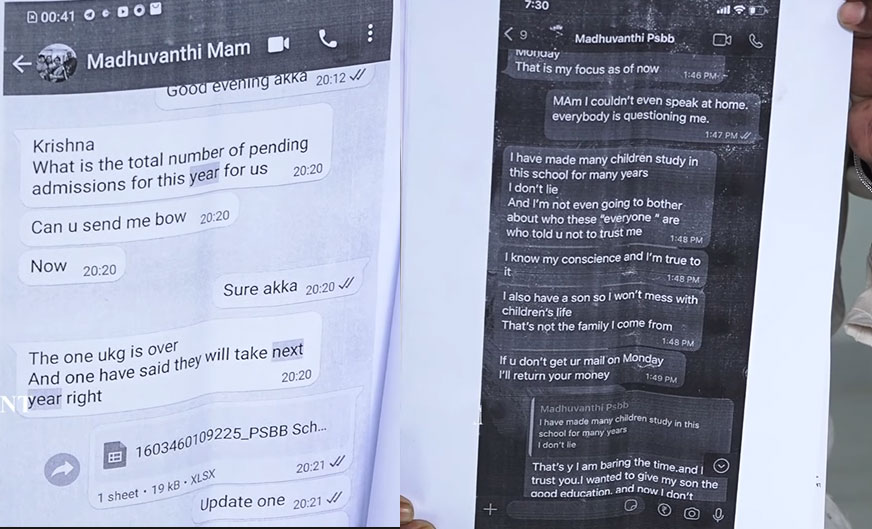 00:41
Madhuvanthi Mam
Good evening akka 20:12
Krishna
What is the total number of pending
admissions for this year for us 20:20
Can u send me bow 20:20
Now 20:20
Sure akka 20:20
The one ukg is over
And one have said they will take next
year right 20:20
NT
1603460109225_PSBB Sch...
1 sheet • 19 kB • XLSX 20:21
Update one 20:21
7:30
9 Madhuvanthi Psbb
Monday
That is my focus as of now 1:46 PM
MAm I couldn't even speak at home.
everybody is questioning me.
1:47 PM
I have made many children study in
this school for many years
I don't lie
And I'm not even going to bother
about who these "everyone " are
who told u not to trust me 1:48 PM
I know my conscience and I'm true to
it 1:48 PM
I also have a son so I won't mess with
children's life
That's not the family I come from
1:48 PM
If u don't get ur mail on Monday
I'll return your money 1:49 PM
Madhuvanthi Psbb
I have made many children study in this
school for many years
I don't lie
That's y I am baring the time.and I
trust you.I wanted to give my son the
good education. and now I don't